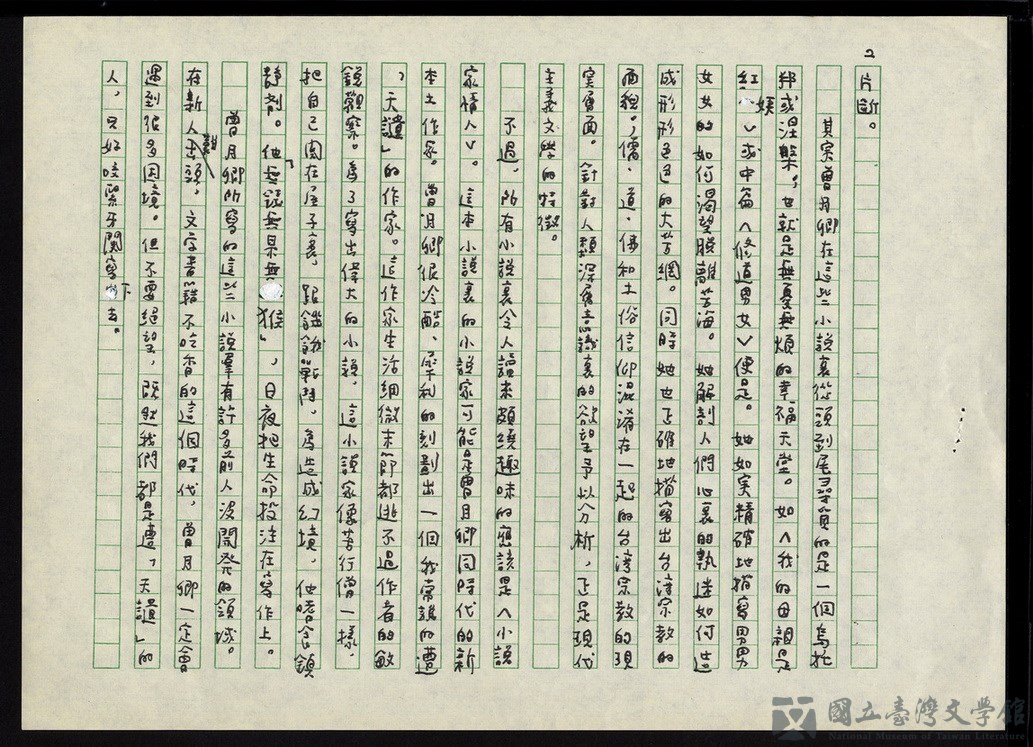 2
片斷。
其実曾月卿在這些小說裏從頭到尾尋覓的是一個烏托
邦或涅槃，也就是無憂無煩的幸福天堂。如〈我的母親是
紅娛〉或中篇〈修道男女〉便是。她如実精確地描寫男男
女女的如何渴望脫離苦海。她解剖人們心裏的執迷如何造
成形形色色的大苦網。同時她也正確地描寫出台湾宗教的
面貌，儒、道、佛和土俗信仰混淆在一起的台湾宗教的現
実層面。針對人類深層意識裏的欲望予以分析，正是現代
主義文學的特徵。
不過，所有小說裏令人讀來頗饒趣味的應該是〈小說
家情人〉。這本小說裏的小說家可能是曾月卿同時代的新
本土作家。曾月卿很冷酷、犀利的刻劃出一個我常說的遭
「天譴」的作家。這作家生活細微末節都逃不過作者的敏
銳觀察。為了寫出偉大的小說，這小說家像苦行僧一樣，
把自己関在屋子裏，跟饑餓戰鬥，為造成幻境，他嗜食鎮
靜劑。他「無頭無果無猴」，日夜把生命投注在寫作上。
曾月卿所寫的這些小說羣有許多前人沒開発的領域。
在新人出頭，文字書籍不吃香的這個時代，曾月卿一定會
遇到很多困境。但不要絕望，既然我們都是遭「天譴」的
人，只好咬緊牙関寫下去。
國立臺灣文學館
National Museum of Taiwan Literature